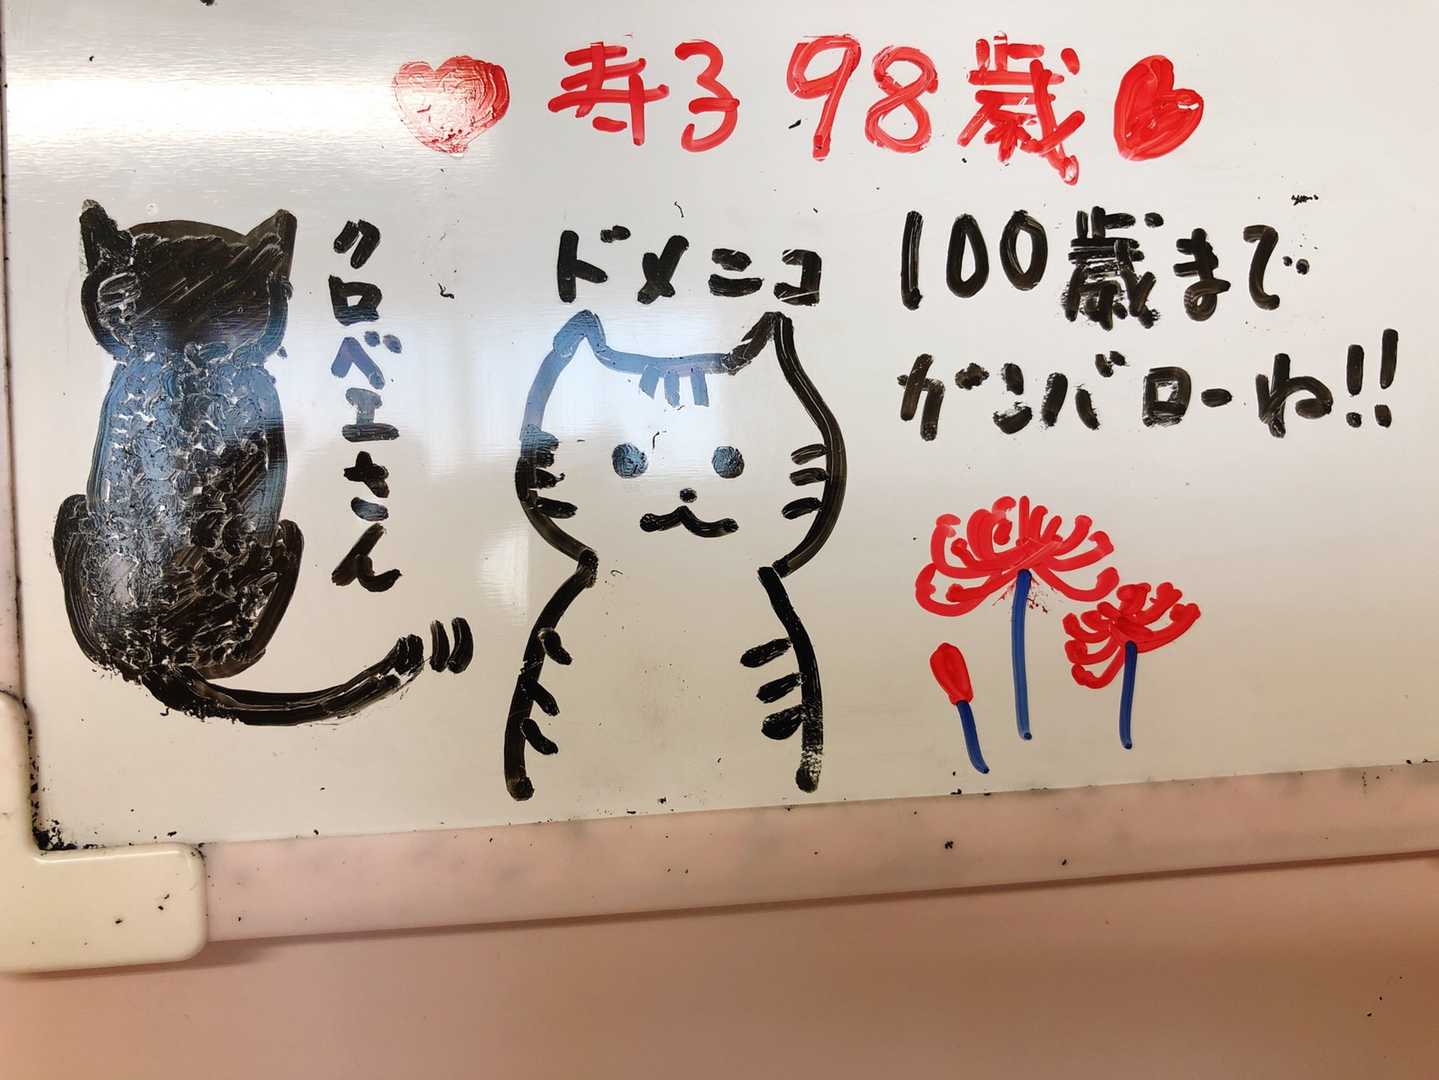 寿子98歳
クロベエさん
ドメニコ
100歳まで
ガンバローね!!